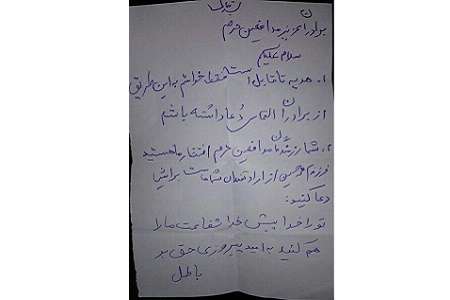 بسمه تعالی
برادران عزیز مدافعین حرم
سلام علیکم
۱. هدیه ناقابل است فقط خواستم به این طریق
از برادران التماس دعا داشته باشم
۲. شما رزمندگان مدافعین حرم افتخار ما هستید
فرزندم از ارادتمندان شماست برایش
دعا کنید:
تو را خدا پیش خدا شفاعت ما را
هم کنید به امید پیروزی حق بر
باطل